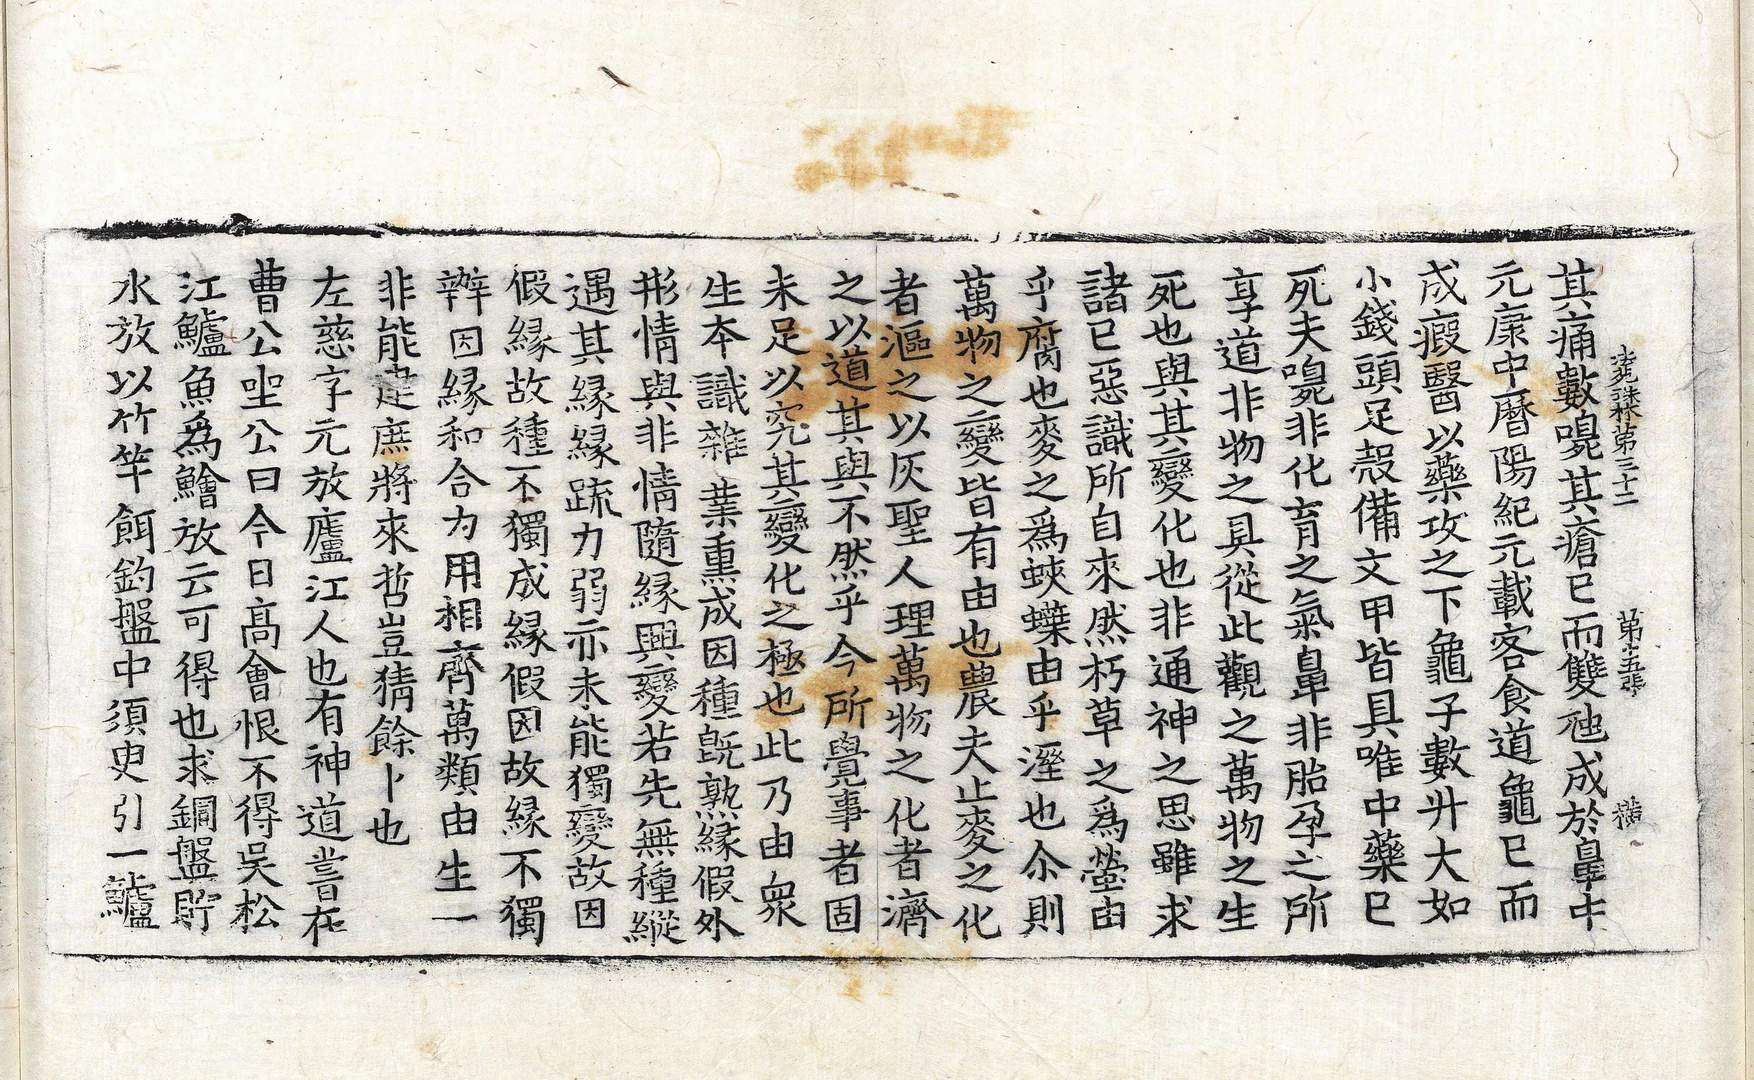 法苑珠林第三十二 第十五張 橫
其痛數嗅其瘡已而雙虵成於鼻中
元康中曆陽紀元載客食道龜已而
成瘕醫以藥攻之下龜子數升大如
小錢頭足殼備文甲皆具唯中藥已
死夫嗅非化育之氣鼻非胎孕之所
享道非物之具從此觀之萬物之生
死也與其變化也非通神之思雖求
諸已惡識所自來然朽草之爲螢由
乎腐也麥之爲蛺蠂由乎溼也尒則
萬物之變皆有由也農夫止麥之化
者漚之以灰聖人理萬物之化者濟
之以道其與不然乎今所覺事者固
未足以究其變化之極也此乃由衆
生本識雜業熏成因種旣熟緣假外
形情與非情隨緣興變若先無種縱
遇其緣緣疏力弱亦未能獨變故因
假緣故種不獨成緣假因故緣不獨
辦因緣和合力用相齊萬類由生一
非能建庶將來哲豈猜餘卜也
左慈字元放廬江人也有神道嘗在
曹公坐公曰今日高會恨不得吳松
江鱸魚爲鱠放云可得也求銅盤貯
水放以竹竿餌釣盤中須臾引一鱸